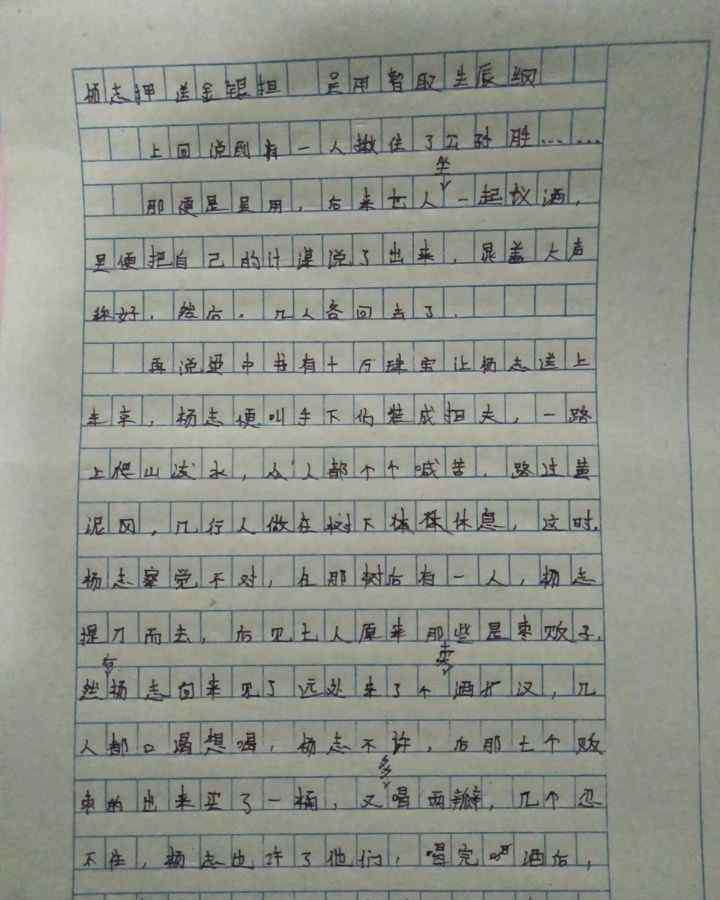 杨志押送金银担 吴用智取生辰纲
上回说到有一人揪住了公孙胜……
那便是吴用，后来七人坐一起议酒，
里便把自己的计谋说了出来，晁盖大声
称好，然后，几人各回去了．
再说梁中书有十万珠宝让杨志送上
东京，杨志便叫手下伪装成担夫，一路
上爬山泼水，众人都个个喊苦．路过黄
泥冈，几行人做在树下休息，这时，
杨志察觉不对，在那树后有一人，杨志
提刀而去，后见七人原来那些是枣贩子，
然后杨志回来见了远处来了个卖酒的汉，几
人都口渴想喝，杨志不许，后那七个贩
枣的出来买了一桶，又多喝两瓣，几个忍
不住，杨志也许了他们，喝完酒后，